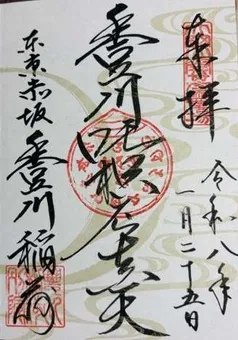 奉拝
令和八年
一月二十五日
豊川吒枳尼真天
東京赤坂
豊川稲荷